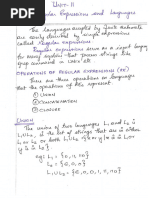 UNIT-II
Regular Expressions and Languages
The Languages accepted by finite automata
are easily described by simple expressions
called Regular Expressions.
Regular Expressions serve as a input language
for many systems that process strings eg:
grep command in UNIX etc
OPERATORS OF REGULAR EXPRESSIONS (RE)
There are three operations on languages
that the operators of this represent.
① UNION
② CONCATENATION
③ CLOSURE
UNION
The union of two languages L1 and L2 is
L1 U L2, the set of strings that are in either
L1 or L2, or both.
eg: L1 = {0, 1, 10}
L2 = {ε, 0, 110}
L1 U L2 = {ε, 0, 1, 10, 110}